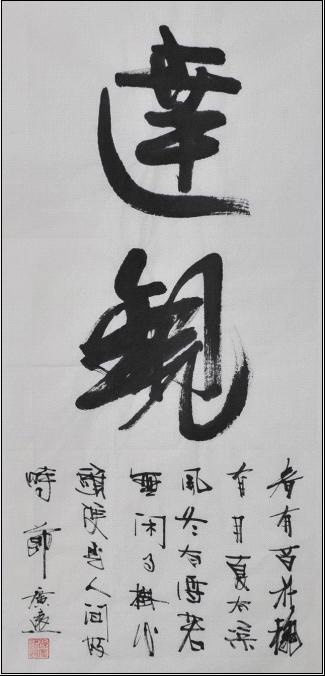 達觀
春有百花秋
有月夏有涼
風冬有雪若
無閑事掛心
頭便是人間好
時節